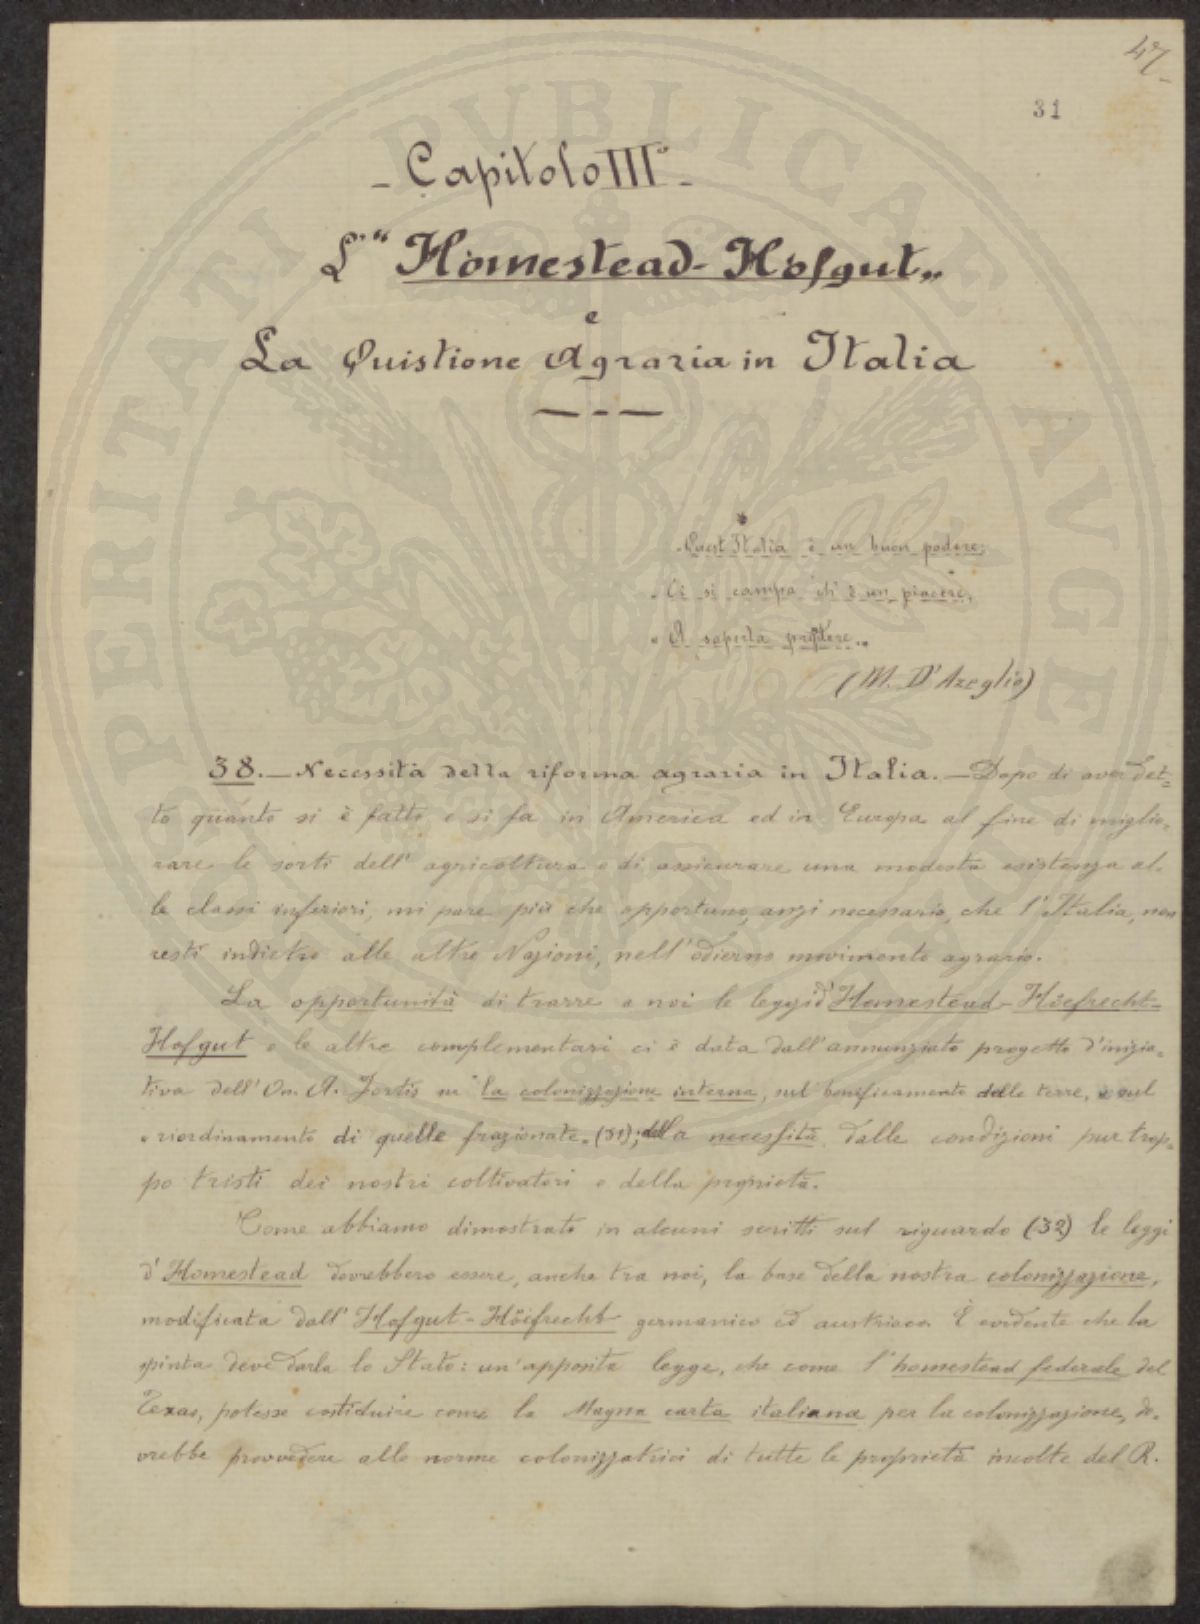 47
31
- Capitolo III° -
L'" Homestead-Hofgut „
e
La Quistione Agraria in Italia
Quest'Italia è un buon podere;
Ci si campa ch'è un piacere,
A saperla
(M. D'Azeglio)
38. — Necessità della riforma agraria in Italia. — Dopo di aver det=
to quanto si è fatto e si fa in America ed in Europa al fine di miglio=
rare le sorti dell' agricoltura e di assicurare una modesta esistenza al-
le classi inferiori, mi pare più che opportuno, anzi necessario, che l'Italia, non
resti indietro alle altre Nazioni, nell'odierno movimento agrario.
La opportunità di trarre a noi le leggi d'Homestead-Höefrecht-
Hofgut e le altre complementari ci è data dall'annunziato progetto d'inizia=
tiva dell'On. A. Fortis su la colonizzazione interna, sul bonificamento delle terre, e sul
riordinamento di quelle frazionate. (31); della necessità, dalle condizioni pur trop=
po tristi dei nostri coltivatori e della proprietà.
Come abbiamo dimostrato in alcuni scritti sul riguardo (32) le leggi
d'Homestead dovrebbero essere, anche tra noi, la base della nostra colonizzazione,
modificata dall' Hofgut-Höifrecht germanico ed austriaco. È evidente che la
spinta deve darla lo Stato: un'apposita legge, che come l'homestead federale del
Texas, potesse costiduire come la Magna carta italiana per la colonizzazione, do=
vrebbe provvedere alle norme colonizzatrici di tutte le proprietà incolte del R.
PERITATI PVBLICAE AVGE